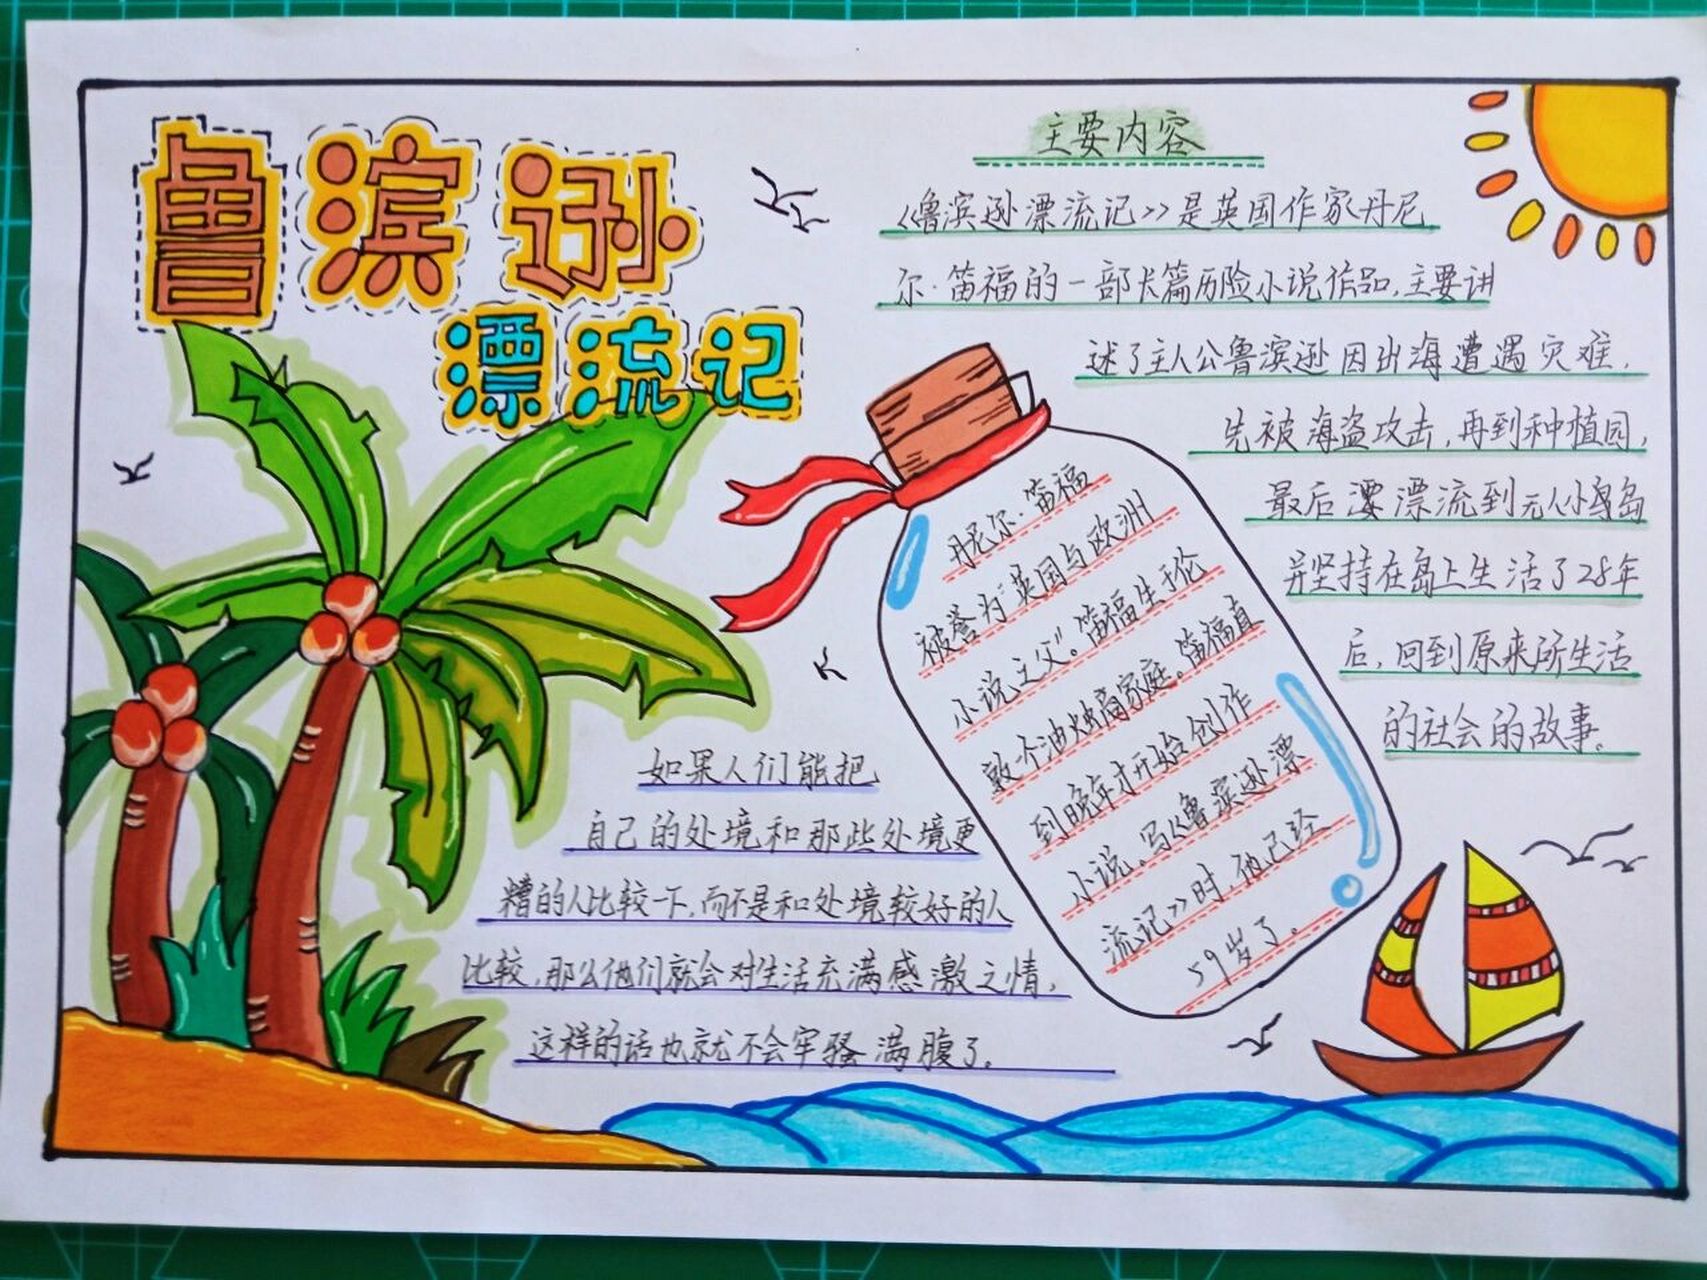 鲁滨逊
漂流记
主要内容
《鲁滨逊漂流记》是英国作家丹尼
尔·笛福的一部长篇历险小说作品,主要讲
述了主人公鲁滨逊因出海遭遇灾难,
先被海盗攻击,再到种植园,
最后漂流到无人小岛
并坚持在岛上生活了28年
后,回到原来所生活
的社会的故事。
丹尼尔·笛福
被誉为"英国与欧洲
小说之父"。笛福生于伦
敦一个油烛商家庭。笛福直
到晚年才开始创作
小说。写《鲁滨逊漂
流记》时,他已经
59岁了。
如果人们能把
自己的处境和那些处境更
糟的人比较一下,而不是和处境较好的人
比较,那么他们就会对生活充满感激之情,
这样的话也就不会牢骚满腹了。